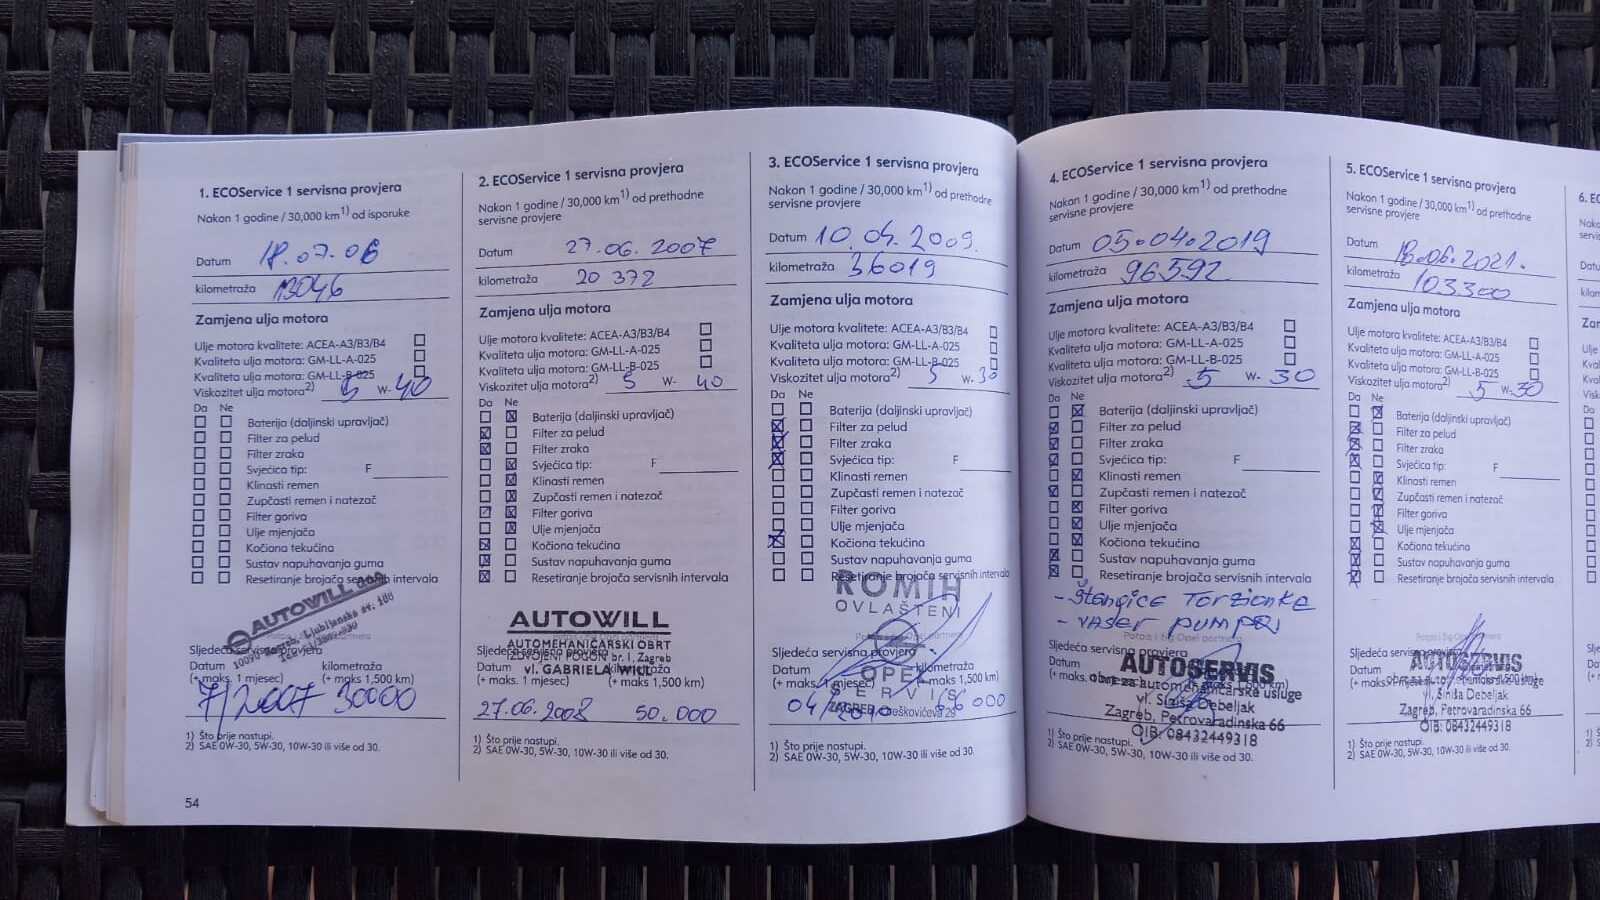 1. ECOService 1 servisna provjera
Nakon 1 godine / 30,000 km1) od isporuke
Datum 18.07.06
kilometraža 13046
Zamjena ulja motora
Ulje motora kvalitete: ACEA-A3/B3/B4
Kvaliteta ulja motora: GM-LL-A-025
Kvaliteta ulja motora: GM-LL-B-025
Viskozitet ulja motora2) 5 W- 40
Da Ne
Baterija (daljinski upravljač)
Filter za pelud
Filter zraka
Svjećica tip: F
Klinasti remen
Zupčasti remen i natezač
Filter goriva
Ulje mjenjača
Kočiona tekućina
Sustav napuhavanja guma
Resetiranje brojača servisnih intervala
AUTOWILL
Sljedeća servisna provjera
Datum kilometraža
(+ maks. 1 mjesec) (+ maks. 1,500 km)
7/2007 30000
1) Što prije nastupi.
2) SAE 0W-30, 5W-30, 10W-30 ili više od 30.
54
2. ECOService 1 servisna provjera
Nakon 1 godine / 30,000 km1) od prethodne
servisne provjere
Datum 27.06.2007
kilometraža 20 372
Zamjena ulja motora
Ulje motora kvalitete: ACEA-A3/B3/B4
Kvaliteta ulja motora: GM-LL-A-025
Kvaliteta ulja motora: GM-LL-B-025
Viskozitet ulja motora2) 5 W- 40
Da Ne
Baterija (daljinski upravljač)
Filter za pelud
Filter zraka
Svjećica tip: F
Klinasti remen
Zupčasti remen i natezač
Filter goriva
Ulje mjenjača
Kočiona tekućina
Sustav napuhavanja guma
Resetiranje brojača servisnih intervala
AUTOWILL
AUTOMEHANIČARSKI OBRT
IZDVOJENI POGON br. 1, Zagreb
vl. GABRIELA WILL
Sljedeća servisna provjera
Datum kilometraža
(+ maks. 1 mjesec) (+ maks. 1,500 km)
27.06.2008 50.000
1) Što prije nastupi.
2) SAE 0W-30, 5W-30, 10W-30 ili više od 30.
3. ECOService 1 servisna provjera
Nakon 1 godine / 30,000 km1) od prethodne
servisne provjere
Datum 10.04.2009.
kilometraža 36019
Zamjena ulja motora
Ulje motora kvalitete: ACEA-A3/B3/B4
Kvaliteta ulja motora: GM-LL-A-025
Kvaliteta ulja motora: GM-LL-B-025
Viskozitet ulja motora2) 5 W- 30
Da Ne
Baterija (daljinski upravljač)
Filter za pelud
Filter zraka
Svjećica tip: F
Klinasti remen
Zupčasti remen i natezač
Filter goriva
Ulje mjenjača
Kočiona tekućina
Sustav napuhavanja guma
Resetiranje brojača servisnih intervala
ROMIH
OVLAŠTENI
OPEL
SERVIS
ZAGREB
Sljedeća servisna provjera
Datum kilometraža
(+ maks. 1 mjesec) (+ maks. 1,500 km)
04/2010 66000
1) Što prije nastupi.
2) SAE 0W-30, 5W-30, 10W-30 ili više od 30.
4. ECOService 1 servisna provjera
Nakon 1 godine / 30,000 km1) od prethodne
servisne provjere
Datum 05.04.2019
kilometraža 96592
Zamjena ulja motora
Ulje motora kvalitete: ACEA-A3/B3/B4
Kvaliteta ulja motora: GM-LL-A-025
Kvaliteta ulja motora: GM-LL-B-025
Viskozitet ulja motora2) 5 W- 30
Da Ne
Baterija (daljinski upravljač)
Filter za pelud
Filter zraka
Svjećica tip: F
Klinasti remen
Zupčasti remen i natezač
Filter goriva
Ulje mjenjača
Kočiona tekućina
Sustav napuhavanja guma
Resetiranje brojača servisnih intervala
- Štangice Torzionke
- vaser pumpa
Sljedeća servisna provjera
Datum
AUTOSERVIS
obrt za automehaničarske usluge
vl. Siniša Debeljak
Zagreb, Petrovaradinska 66
OIB: 08432449318
1) Što prije nastupi.
2) SAE 0W-30, 5W-30, 10W-30 ili više od 30.
5. ECOService 1 servisna provjera
Nakon 1 godine / 30,000 km1) od prethodne
servisne provjere
Datum 18.06.2021.
kilometraža 103300
Zamjena ulja motora
Ulje motora kvalitete: ACEA-A3/B3/B4
Kvaliteta ulja motora: GM-LL-A-025
Kvaliteta ulja motora: GM-LL-B-025
Viskozitet ulja motora2) 5 W- 30
Da Ne
Baterija (daljinski upravljač)
Filter za pelud
Filter zraka
Svjećica tip: F
Klinasti remen
Zupčasti remen i natezač
Filter goriva
Ulje mjenjača
Kočiona tekućina
Sustav napuhavanja guma
Resetiranje brojača servisnih intervala
Sljedeća servisna provjera
Datum
AUTOSERVIS
vl. Siniša Debeljak
Zagreb, Petrovaradinska 66
OIB: 08432449318
1) Što prije nastupi.
2) SAE 0W-30, 5W-30, 10W-30 ili više od 30.